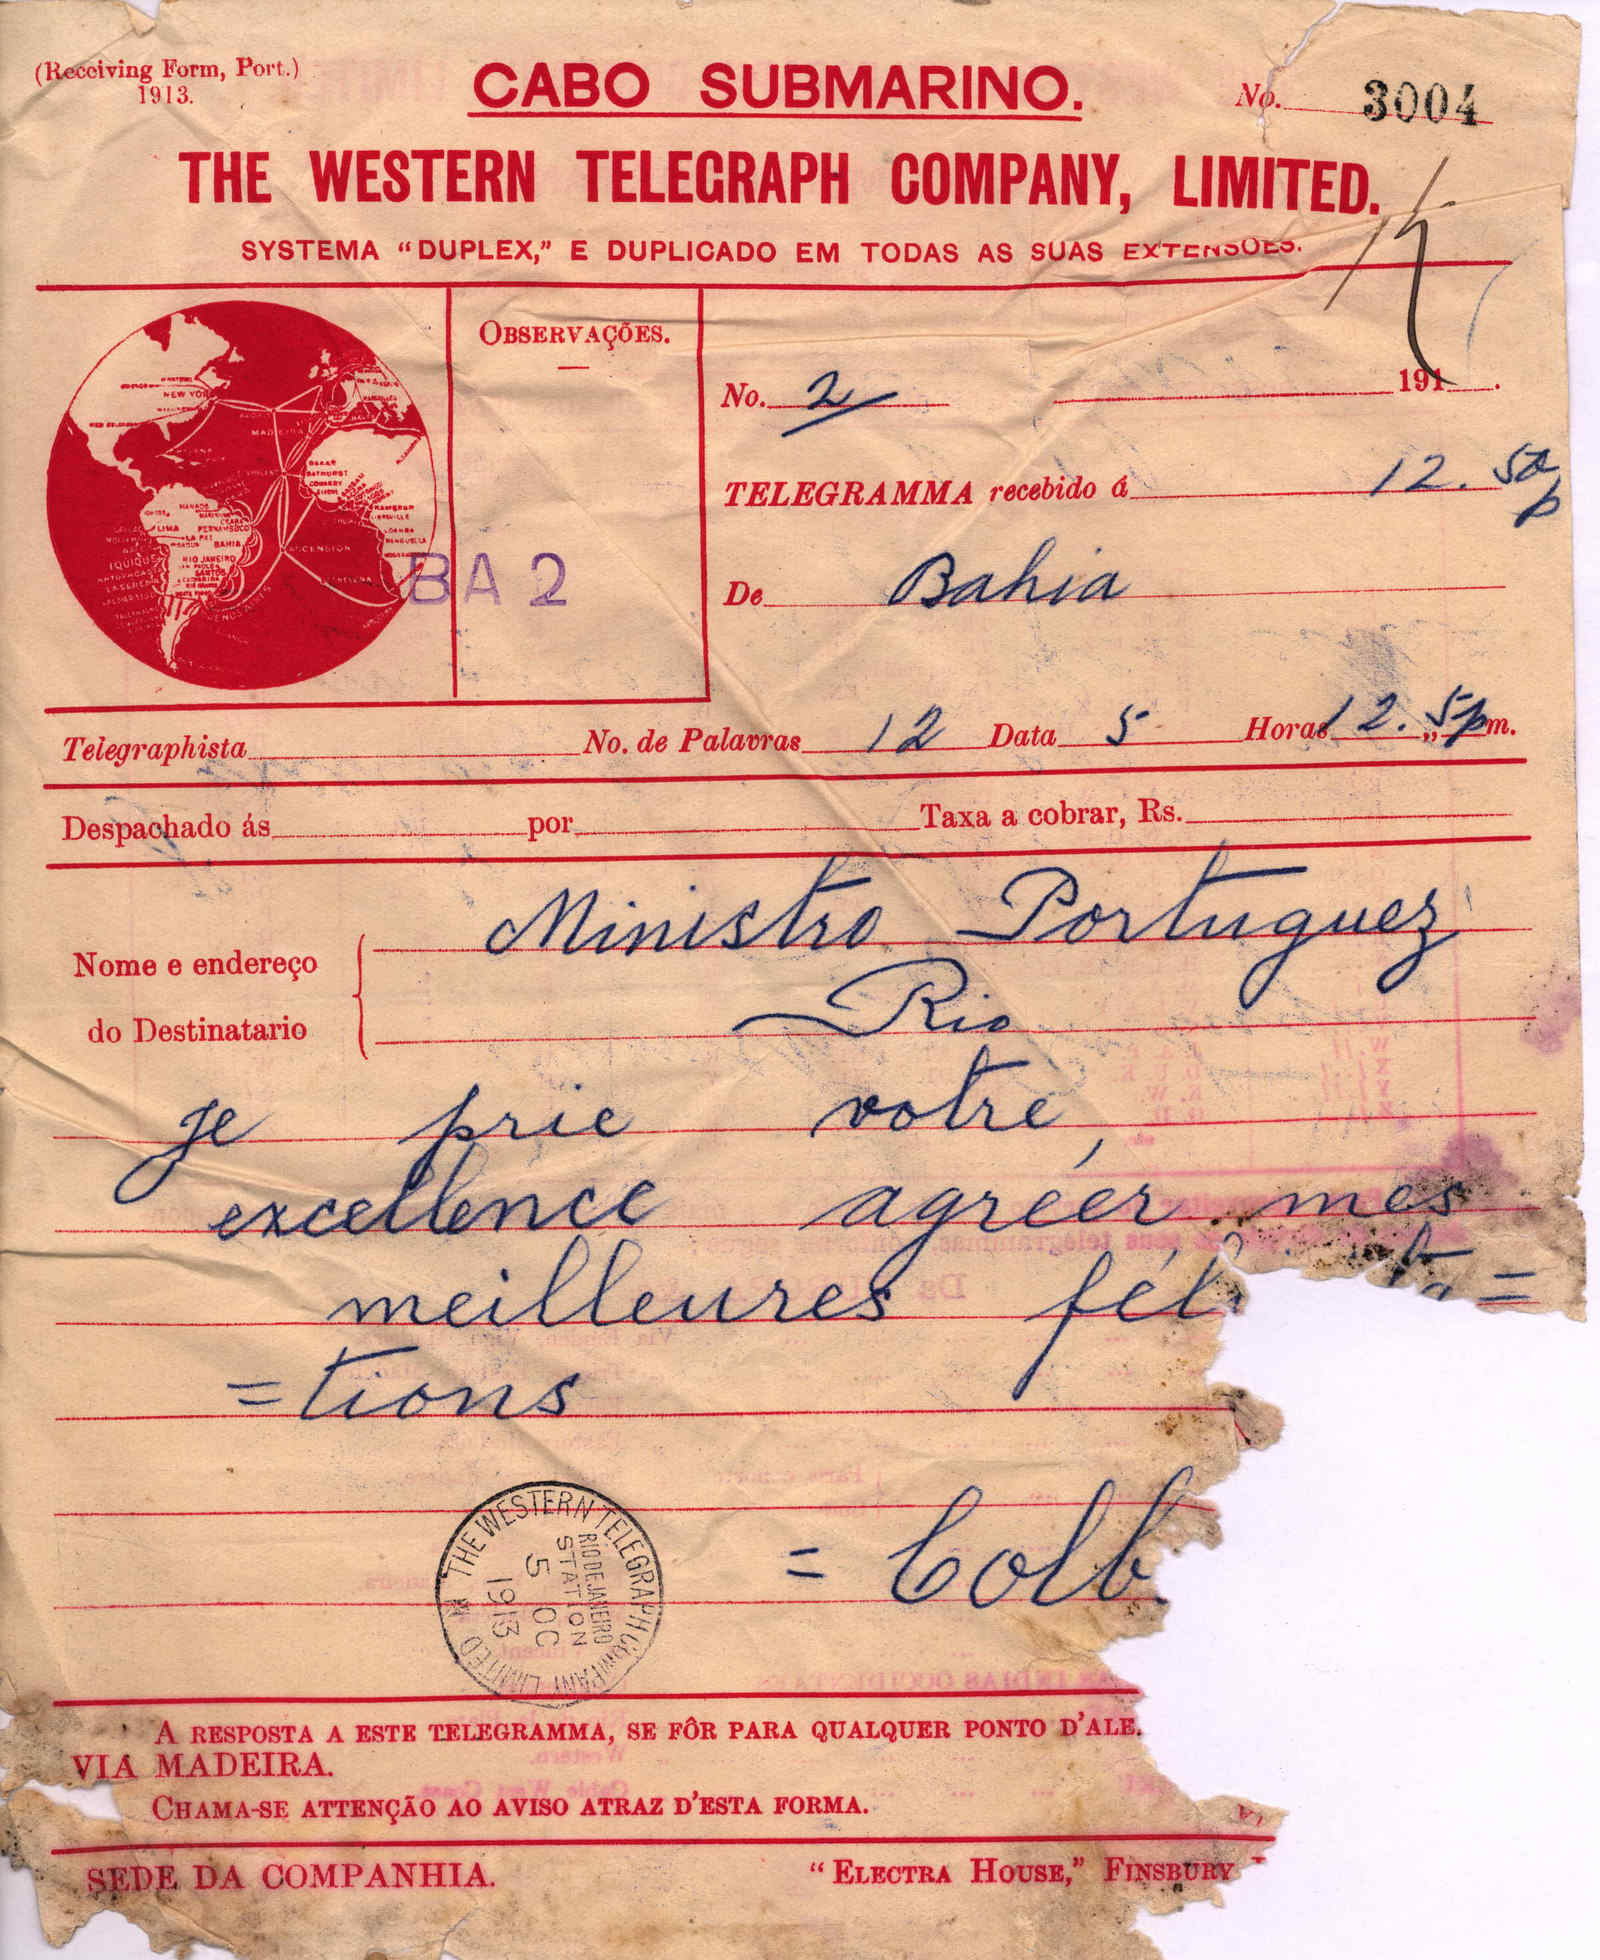 (Receiving Form, Port.)
1913.
CABO SUBMARINO.
No. 3004
THE WESTERN TELEGRAPH COMPANY, LIMITED.
SYSTEMA "DUPLEX," E DUPLICADO EM TODAS AS SUAS EXTENSOES.
OBSERVAÇÕES.
No. 2
191 .
TELEGRAMMA recebido á 12.50 p
BA2
De Bahia
NEW YORK
MADEIRA
DAKAR
BATHURST
ASCENSION
LIMA
PERNAMBUCO
LA PAZ
BAHIA
IQUIQUE
RIO JANEIRO
SANTOS
Telegraphista No. de Palavras 12 Data 5 Horas 12.5 pm.
Despachado ás por Taxa a cobrar, Rs.
Nome e endereço
do Destinatario
Ministro Portuguez
Rio
je prie votre
excellence agréer mes
meilleures
=tions
= Colb
THE WESTERN TELEGRAPH COMPANY LIMITED
RIO DE JANEIRO
STATION
5 OC
1913
A RESPOSTA A ESTE TELEGRAMMA, SE FÔR PARA QUALQUER PONTO D'ALE
VIA MADEIRA.
CHAMA-SE ATTENÇÃO AO AVISO ATRAZ D'ESTA FORMA.
SEDE DA COMPANHIA.
"ELECTRA HOUSE," FINSBURY